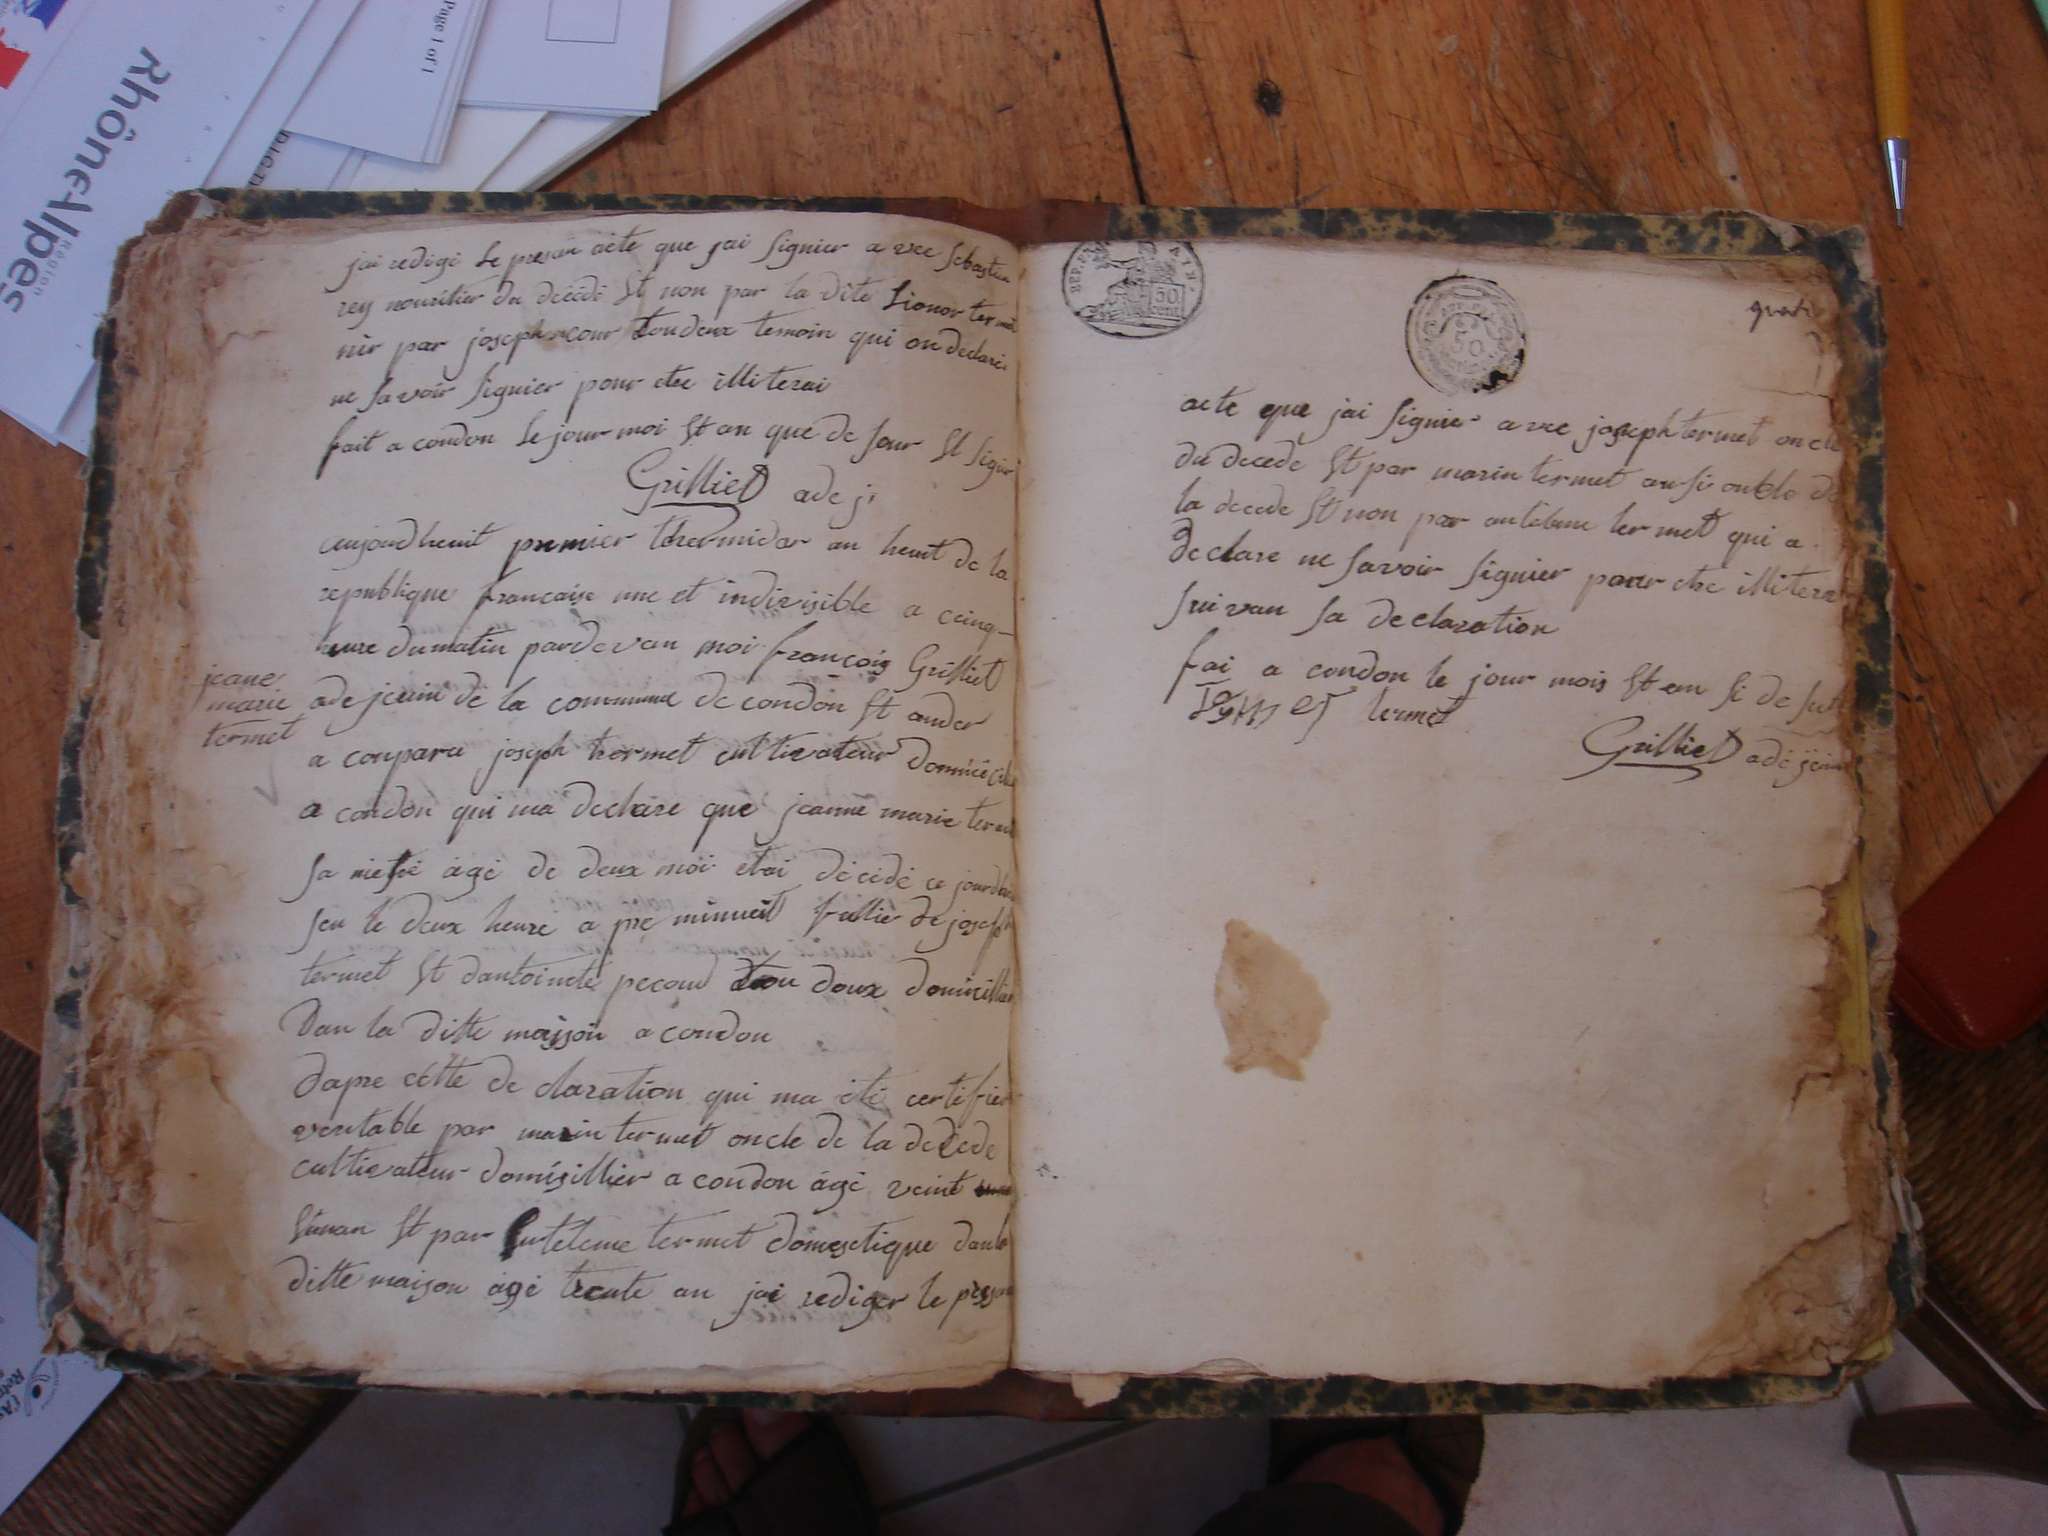 Rhône-Alpes
Région
Page 1 of 1
jai redigé le presan acte que jai signier a vec sebastien
rey nouritier du décédé Et non par la dite Lionor termet
nir par joseph cour toudeux temoin qui on declare
ne savoir signier pour etre illiterai
fait a condon le jour moi Et an que de sur Et signé
Grilliet adej
aujoudheuit premier thermidor an heuit de la
republique francaise une et indivisible a cinq
heure dumatin pardevan moi françois Grilliet
adejeuin de la commune de condon St ander
jeane
marie
termet
a conparu joseph termet cultivateur domicié
a condon qui ma declare que jeanne marie termet
sa niesse âgé de deux moi etai décédé ce jourdhui
seu le deux heure a pre minueit fillie de joseph
termet Et dantoinete pecoud tou doux domicillier
Dan la ditte maison a condon
dapre cette de claration qui ma été certifier
veritable par marin termet oncle de la decede
cultivateur domisillier a condon âgé veint
Et par termet domesctique dan la
ditte maison âgé trente an jai rediger le presan
REP. F.
50
cent
50
acte que jai signier a vec joseph termet oncle
du decede Et par marin termet ausi onkle de
la decede Et non par anteleme termet qui a
declare ne savoir signier pour etre illiterai
suivan sa declaration
fai a condon le jour mois Et an si de sut
termet
Grilliet adejeuin